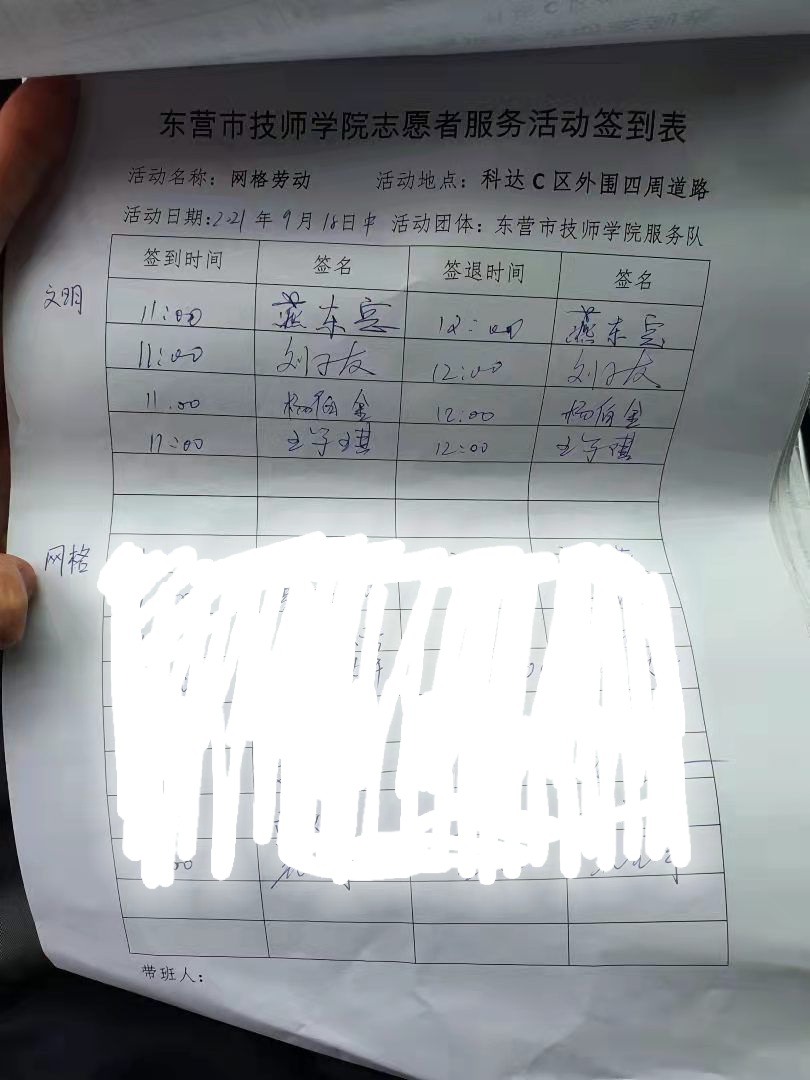 东营市技师学院志愿者服务活动签到表
活动名称：网格劳动 活动地点：科达C区外围四周道路
活动日期:2021年9月18日中 活动团体：东营市技师学院服务队
签到时间 签名 签退时间 签名
文明
11:00 燕东 12:00 燕东
11:00 刘子友 12:00 刘子友
11:00 杨佰金 12:00 杨佰金
11:00 王学琪 12:00 王学琪
网格
带班人：